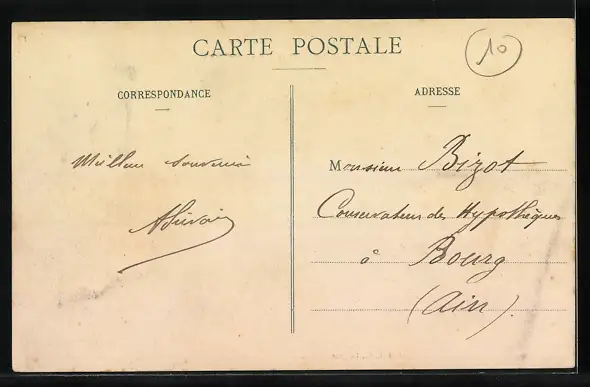 CARTE POSTALE
10
CORRESPONDANCE
ADRESSE
Meilleur souvenir
Monsieur Bizot
Conservateur des Hypothèques
à Bourg
(Ain).